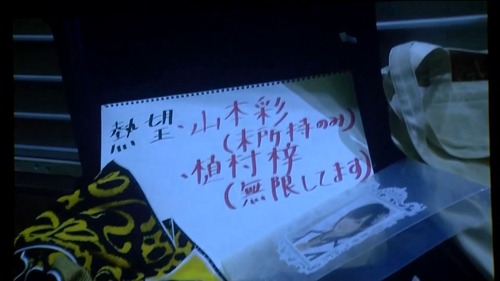 熱望、山本彩
(未所持のみ)
、植村梓
(無限してます)